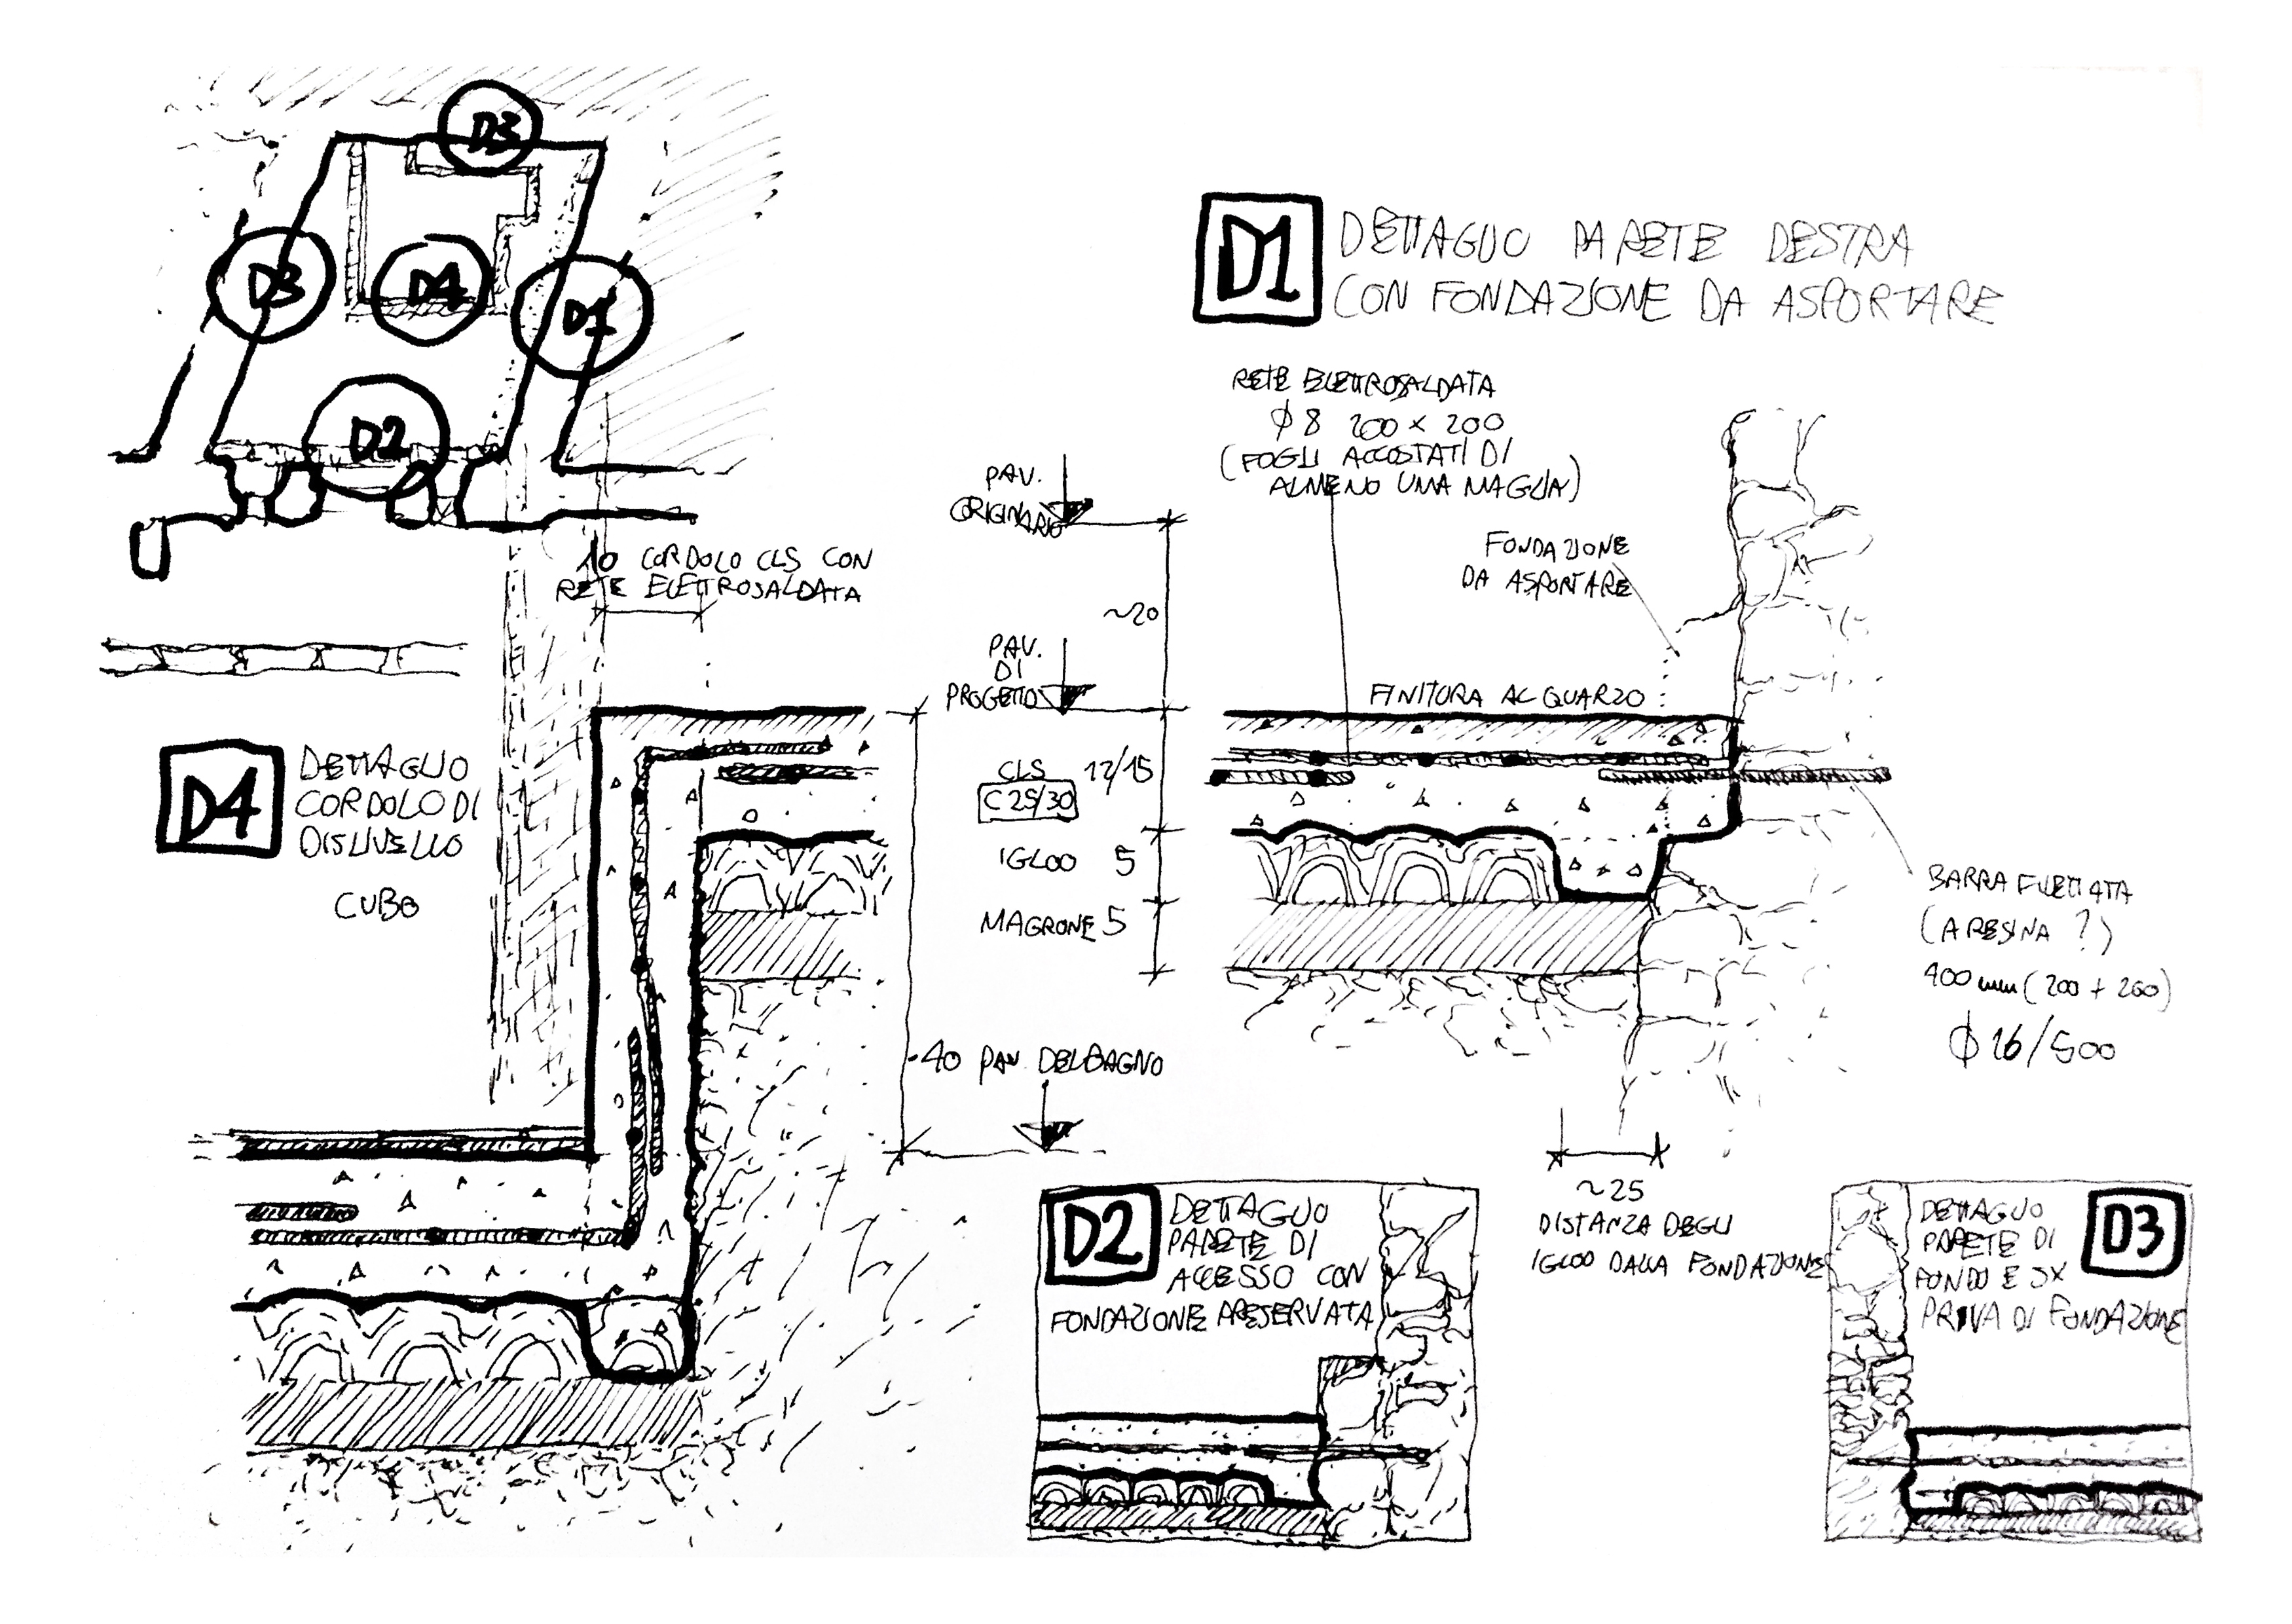 D3
D3
D4
D1
D2
10 CORDOLO CLS CON
RETE ELETTROSALDATA
D4
DETTAGLIO
CORDOLO DI
DISLIVELLO
CUBO
D1
DETTAGLIO PARETE DESTRA
CON FONDAZIONE DA ASPORTARE
RETE ELETTROSALDATA
φ 8 200 x 200
(FOGLI ACCOSTATI DI
ALMENO UNA MAGLIA)
PAV.
ORIGINARIO
~20
PAV.
DI
PROGETTO
FONDAZIONE
DA ASPORTARE
FINITURA AL QUARZO
CLS 12/15
C 25/30
IGLOO 5
MAGRONE 5
BARRA FILETTATA
(A RESINA ?)
400 mm (200 + 200)
φ 16/500
-40 PAV. DEL BAGNO
~25
DISTANZA DEGLI
IGLOO DALLA FONDAZIONE
D2
DETTAGLIO
PARETE DI
ACCESSO CON
FONDAZIONE PRESERVATA
DETTAGLIO
PARETE DI
FONDO E SX
PRIVA DI FONDAZIONE
D3